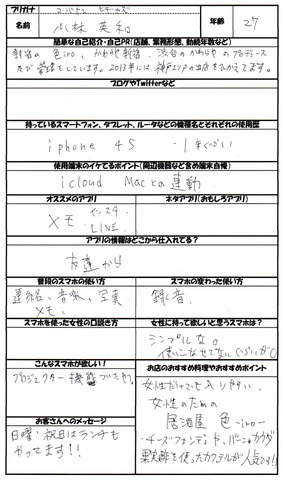 フリガナ
小林 英和
年齢
27
簡単な自己紹介・自己PR(店舗、業務形態、勤続年数など)
新宿の 色iro、かわらや新宿、渋谷の
営業をしています。2013年には、神戸エリアの出店をひかえてます。
ブログやTwitterなど
持っているスマートフォン、タブレット、ルータなどの機種名とそれぞれの使用歴
iphone 4S ・1年ぐらい
使用端末のイケてるポイント(周辺機器など含め端末自慢)
icloud Macとの連動
オススメのアプリ
ネタアプリ(おもしろアプリ)
メモ インスタ
LINE
アプリの情報はどこから仕入れてる?
友達から
普段のスマホの使い方
スマホの変わった使い方
連絡、音楽、写真
メモ、
録音
スマホを使った女性の口説き方
女性に持って欲しいと思うスマホは?
シンプルな。
使いこなせてないぐらいがGood
こんなスマホが欲しい!
プロジェクター機能ついたやつ。
お店のおすすめ料理やおすすめポイント
女性だけでも入りやすい、
女性のための
居酒屋 色-iro-
・チーズフォンデュや、バーニャカウダ
果実酢を使ったカクテルが人気です!!
お客さんへのメッセージ
日曜・祝日はランチも
やってます!!